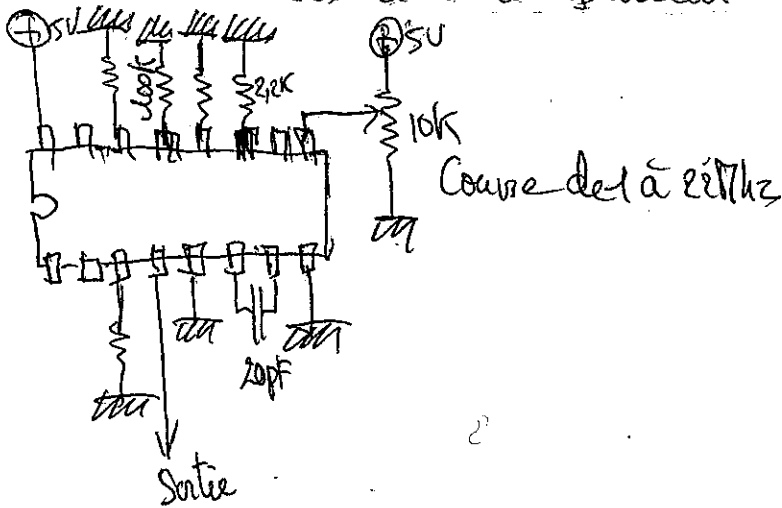 5V
100K
2,2K
5V
10K
Couvre de 1 à 22Mhz
20pF
Sortie